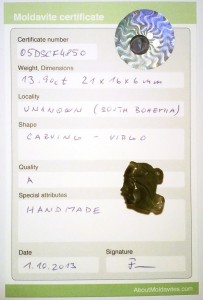 Moldavite certificate
Certificate number
05DSCF4150
Weight, Dimensions
13.90ct 21x16x6mm
Locality
UNKNOWN (SOUTH BOHEMIA)
Shape
CARVING - VIRGO
Quality
A
Special attributes
HANDMADE
Date
Signature
1.10.2013
AboutMoldavites.com